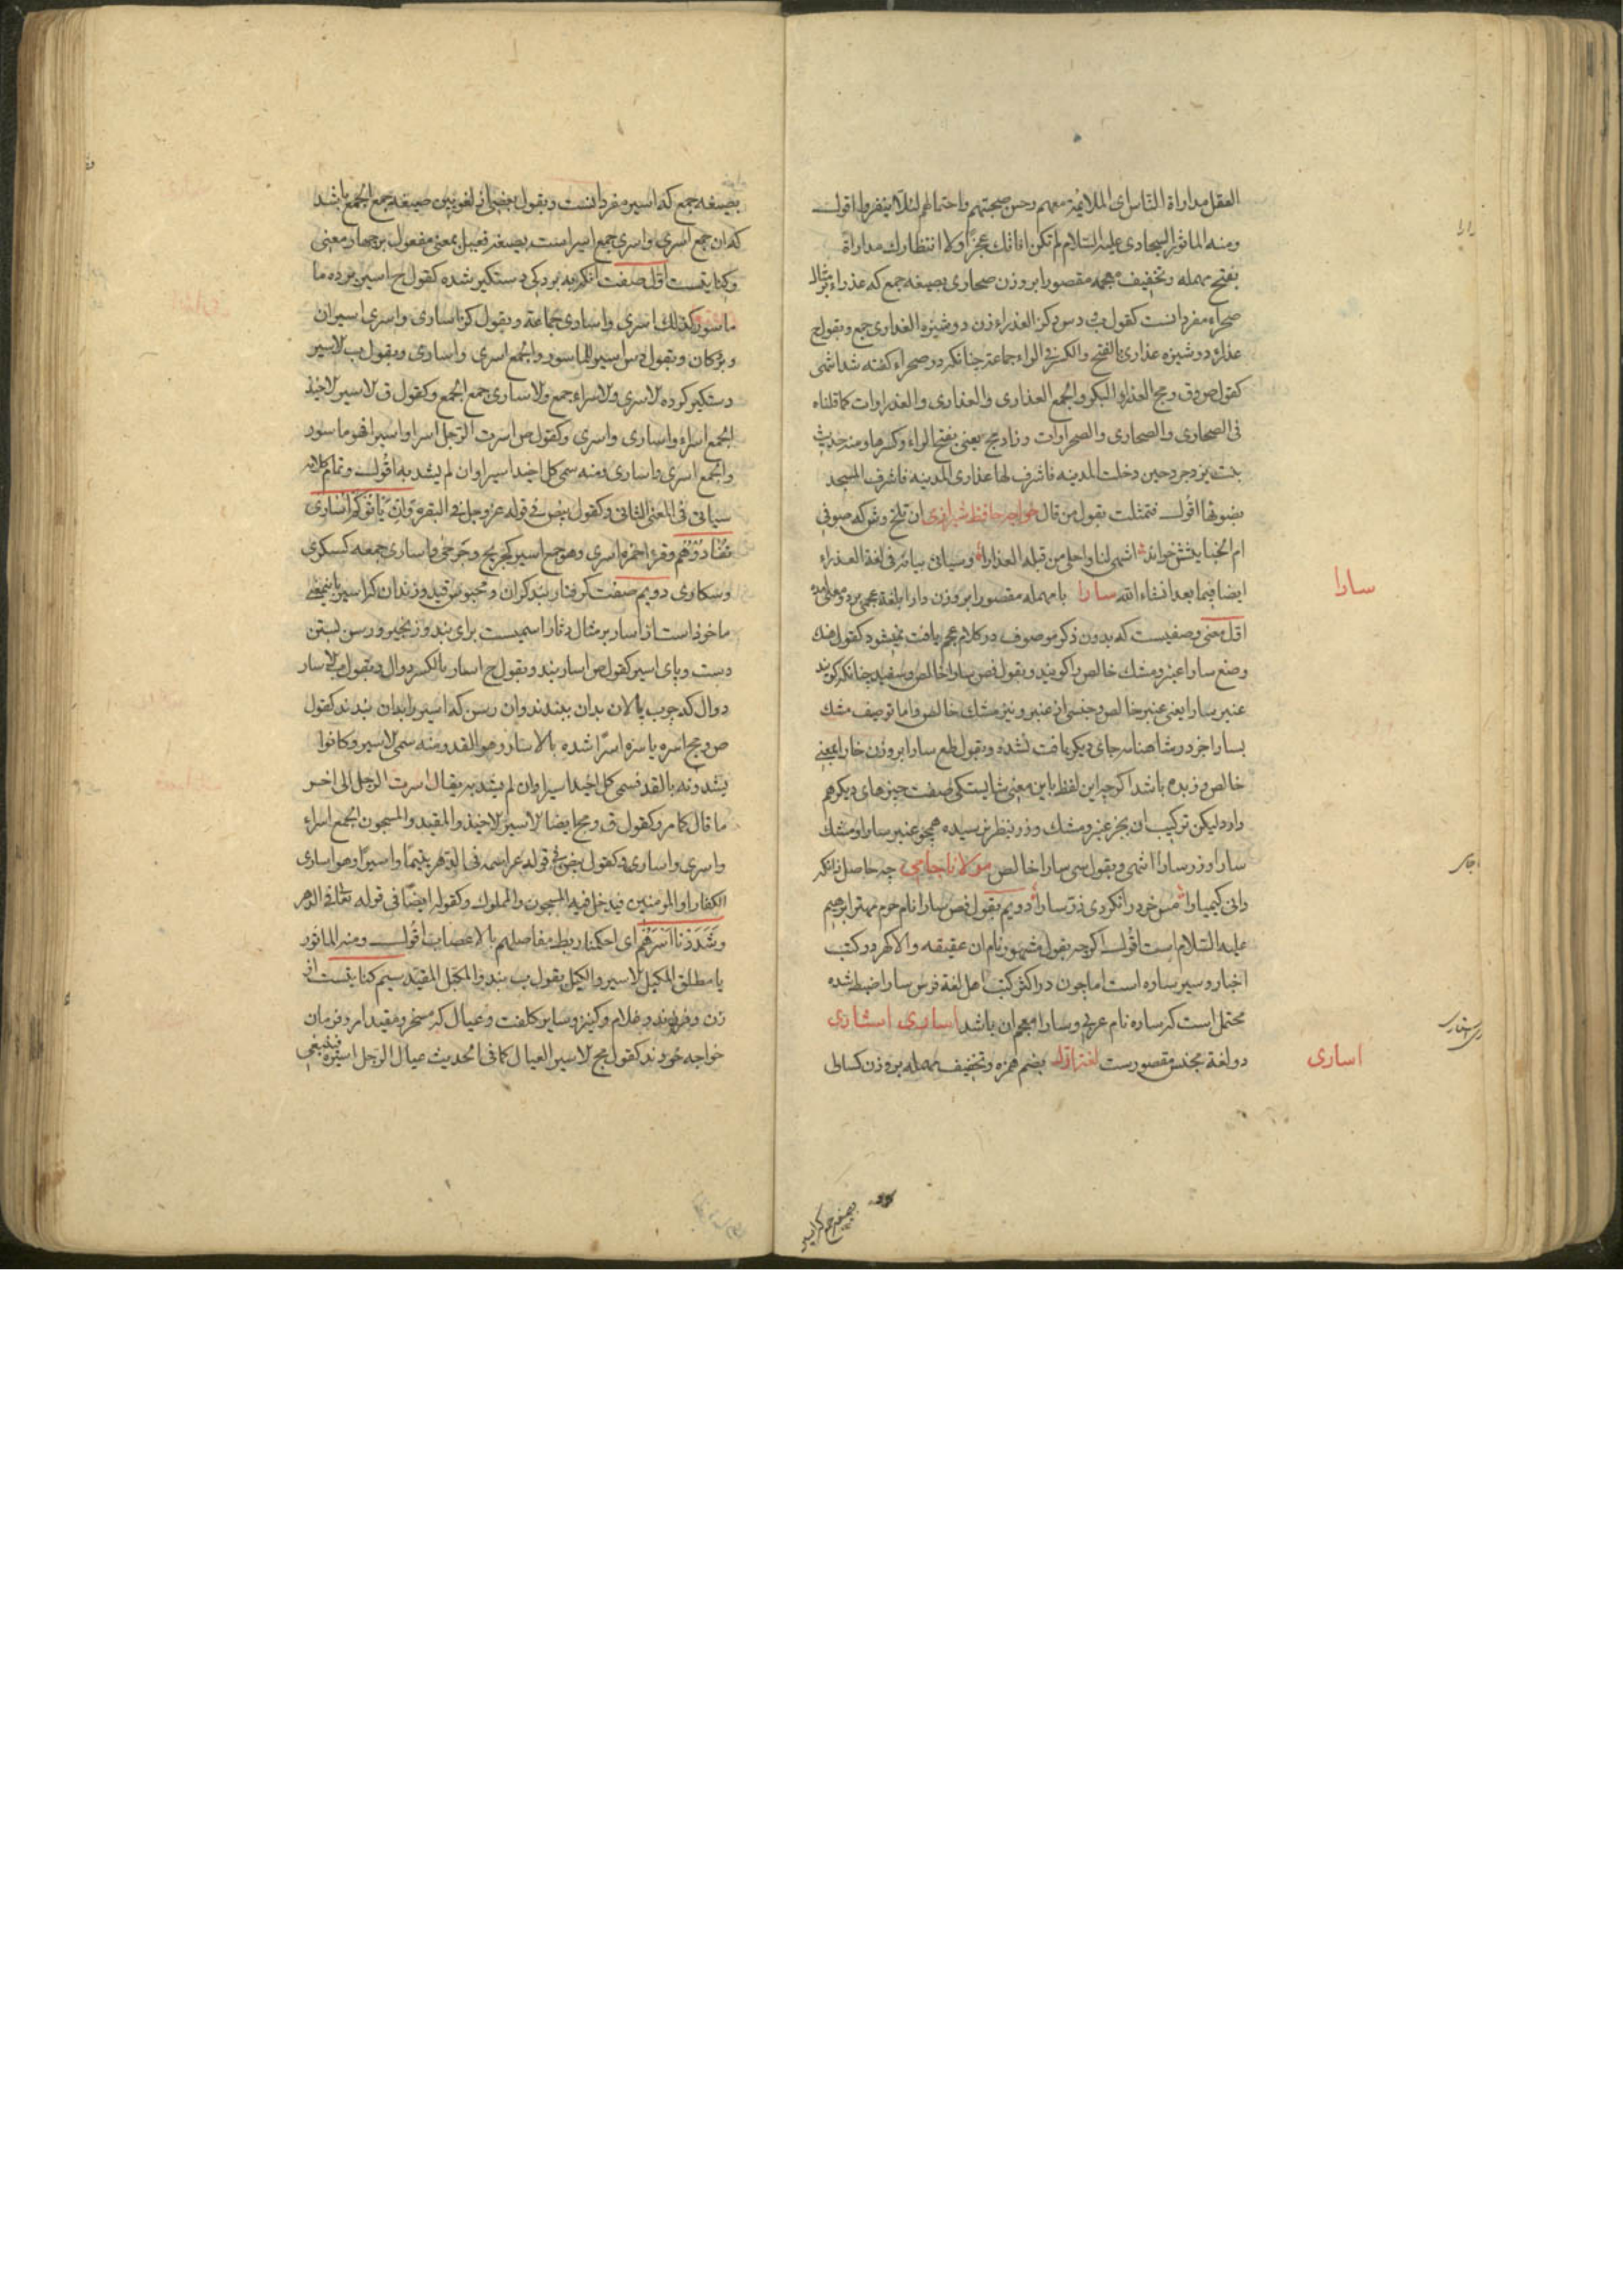 العقل مداراة الناس ای الملایمة معهم وحسن صحبتهم واحتمالهم لئلا ینفروا اقول
ومنه الماثور السجادی علیه السلام لم تکن اناتك عجزا ولا انتظارك مداراة
بفتح مهمله وتخفیف معجمه مقصورا بروزن صحاری بصیغه جمع که عذراء بر مثال
صحراء مفرد انست کقول العذراء زن دوشیزه العذاری جمع وبقول ج
عذراء دوشیزه عذاری بالفتح والکسر فی الراء جماعة چنانکه در صحراء کفته شد انتهی
کقول ص وق ومج العذراء البکر والجمع العذاری والعذاری والعذراوات کما قلناه
فی الصحاری والصحاری والصحراوات وزاد مج یعنی بفتح الراء وکسرها ومنه حدیث
بنت یزدجرد حین دخلت المدینه فاشرف لها عذاری المدینه فاشرف المسجد
بضوئها اقول فتمثلت بقول من قال خواجه حافظ شیرازی ان تلخ وش که صوفی
ام الخبایثش خواند اشهی لنا واحلی من قبلة العذارا وسیاتی بیانه فی لغة العذراء
ایضا فیما بعد انشاء الله سارا با مهمله مقصورا بروزن دارا بلغة عجمی بر دو معنی امده
اول معنی وصفیست که بدون ذکر موصوف در کلام عجم یافت نمیشود کقول
وضع سارا عنبر ومشك خالص را کویند وبقول فص سارا خالص وسفید چنانکه کویند
عنبر سارا یعنی عنبر خالص وجنسی از عنبر ونیز مشك خالص واما توصیف مشك
بسارا جز در شاهنامه جای دیکر یافت نشده وبقول طع سارا بروزن خارا بمعنی
خالص وزبده باشد اکرچه این لفظ باین معنی شایستکی صفت چیزهای دیکر هم
دارد لیکن ترکیب ان بجز عنبر ومشك وزر بنظر نرسیده همچو عنبر سارا ومشك
سارا وزر سارا انتهی وبقول سی سارا خالص مولانا جامی چه حاصل زانکه
دانی کیمیا را مس خود را نکردی زر سارا دویم بقول فص سارا نام حرم مهتر ابرهیم
علیه السلام است اقول اکرچه بقول مشهور نام ان عفیفه والاکهر در کتب
اخبار وسیر ساره است اما چون در اکثر کتب اهل لغة فرس سارا ضبط شده
محتمل است که ساره نام عربی وسارا معجم ان باشد اساری اساری
دو لغة مجنس مقصورست لغة اول بضم همزه وتخفیف مهمله بروزن کسالی
سارا
اساری
بصیغه جمع که اسیر مفرد انست وبقول بعضی از لغویین صیغه جمع الجمع باشد
که ان جمع اسری واسری جمع اسیر است بصیغه فعیل بمعنی مفعول بر چهار معنی
وکنایتست اول صفت انکه به بردکی دستکیر شده کقول ح اسیر برده ما
ماسور کذلك اسری واساری جماعة وبقول کز اساری واسری اسیران
وبردکان وبقول دس اسیر الماسور والجمع اسری واساری وبقول ب الاسیر
دستکیر کرده الاسری والاسراء جمع والاساری جمع الجمع وکقول ق الاسیر الاخیذ
الجمع اسراء واساری واسری وکقول ص اسرت الرجل اسرا واسیرا فهو ماسور
والجمع اسری واساری ومنه سمی کل اخیذ اسیرا وان لم یشد به اقول وتمام کلامه
سیاتی فی المعنی الثانی وکقول بیض فی قوله عز وجل فی البقرة وَاِنْ یَأتُوکُمْ اُسَارَی
تُفَادُوهُمْ وقرء حمزه اسری وهو جمع اسیر کجریح وجرحی واساری جمعه کسکری
وسکاری دویم صفت کرفتار بند کران ومحبوس قید وزندان که اسیر باینمعنی
ماخوذ است از اسار بر مثال دثار اسمیست برای بند وزنجیر ورسن بستن
دست وپای اسیر کقول ص اسار بند وبقول ح اسار بالکسر دوال وبقول ب الاسار
دوال که چوب پالان بدان ببندند وان رسن که اسیر را بدان بندند کقول
ص ومج اسره یاسره اسرا شده بالاسار وهو القد ومنه سمی الاسیر وکانوا
یشدونه بالقد فسمی کل اخیذ اسیرا وان لم یشد به یقال اسرت الرجل الی اخر
ما قال کما مر وکقول ق ومج ایضا الاسیر الاخیذ والمقید والمسجون الجمع اسراء
واسری واساری وکقول بیض فی قوله عز اسمه فی الدهر یتیما واسیرا وهو اساری
الکفار او المومنین فیدخل فیه المسجون والمملوك وکقوله ایضا فی قوله تعالی فی الدهر
وَشَدَدْنَا اَسْرَهُمْ ای احکمنا ربط مفاصلهم بالاعصاب اقول ومنه الماثور
یا مطلق المکبل الاسیر والکبل بقول ب بند والمکبل المقید سیم کنایتست از
زن وفرزند وغلام وکنیز وسایر کلفت وعیال که مسخر ومقید امر وفرمان
خواجه خودند کقول مج الاسیر العیال کما فی الحدیث عیال الرجل اسراؤه فینبغی